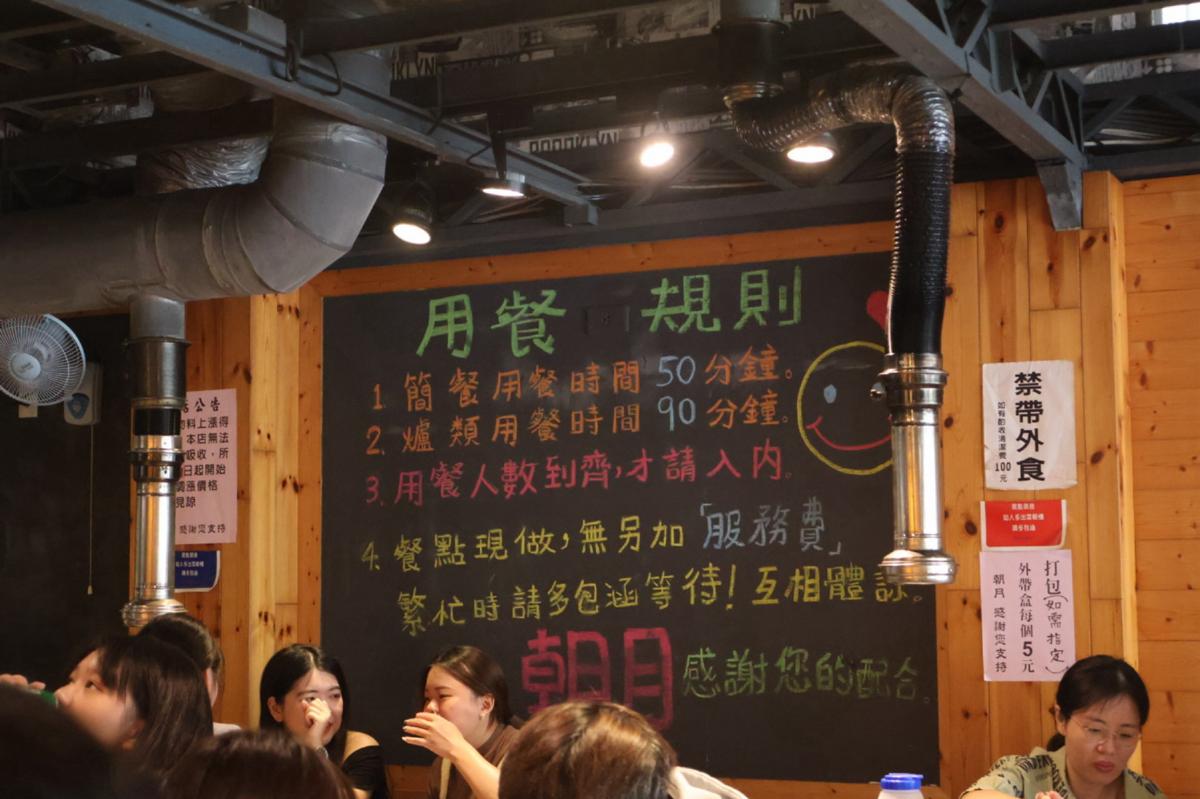 BROOKLYN
用餐 規則
1. 簡餐用餐時間 50 分鐘。
2. 爐類用餐時間 90 分鐘。
3. 用餐人數到齊,才請入內。
4. 餐點現做,無另加「服務費」
繁忙時請多包涵等待!互相體諒。
朝月 感謝您的配合。
公告
料上漲得
本店無法
吸收,所
日起開始
漲價格
見諒
感謝您支持
禁帶外食
如有酌收清潔費100元
打包(如需指定)
外帶盒每個5元
朝月 感謝您支持